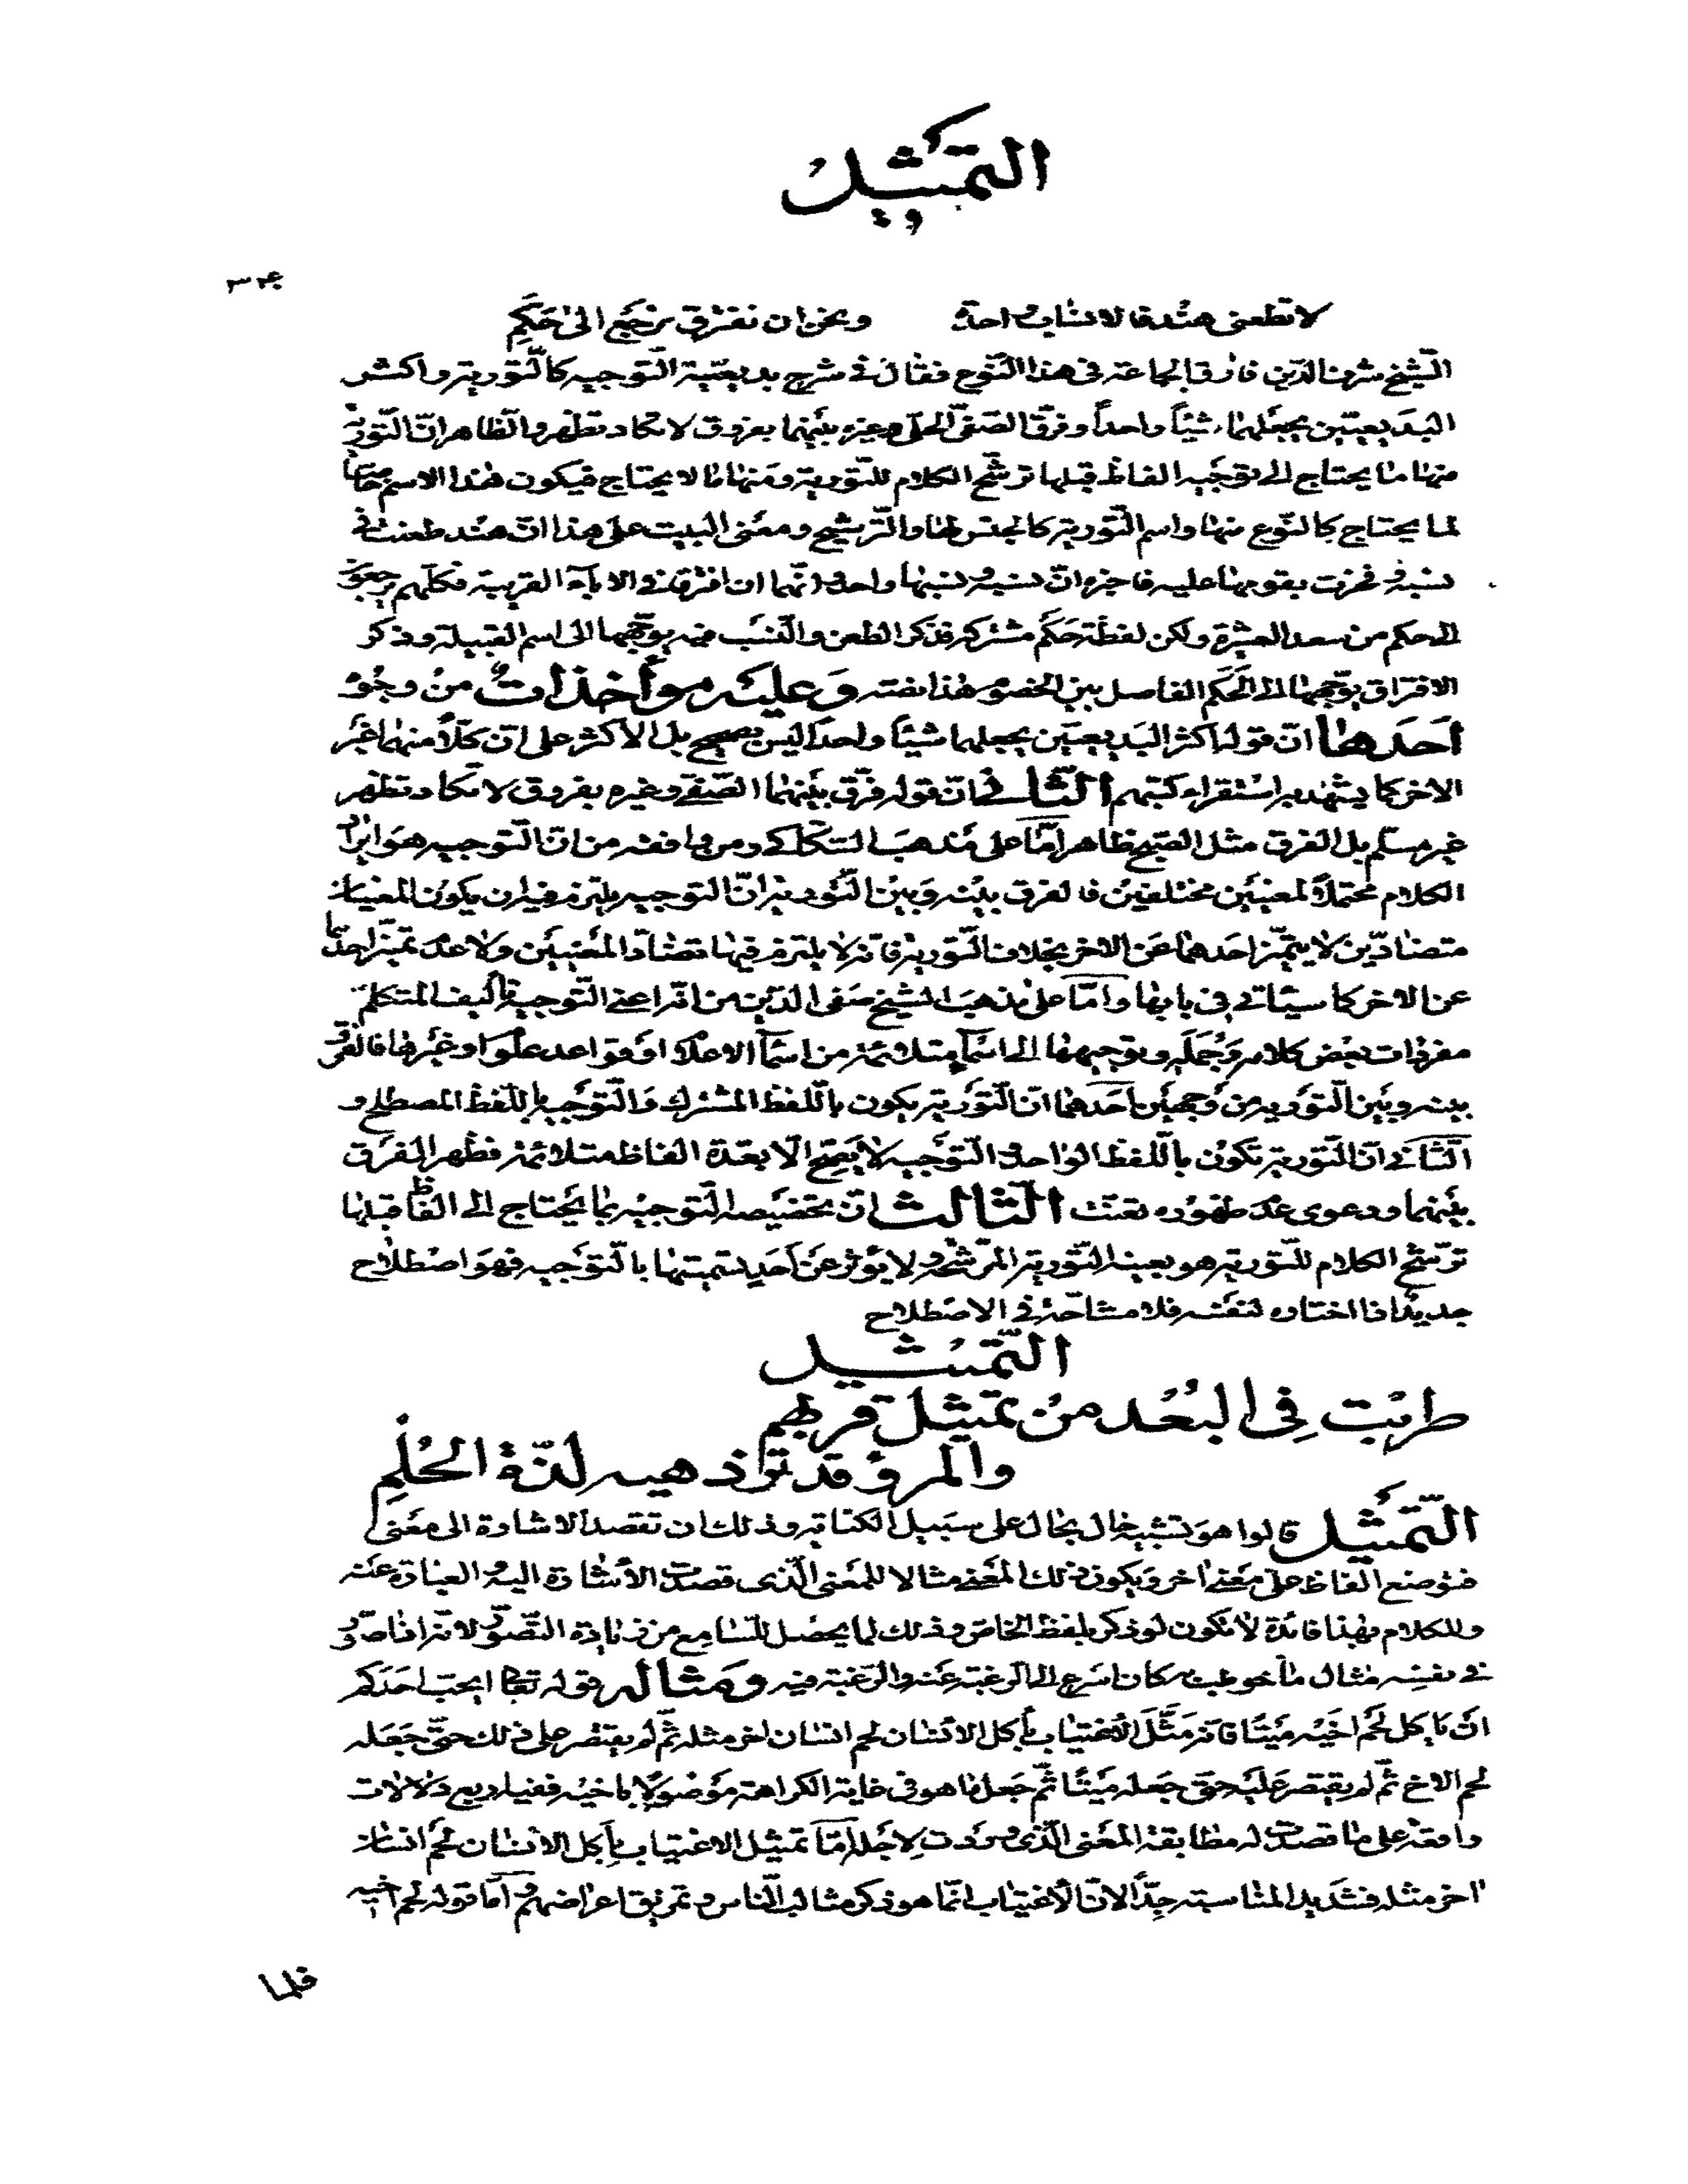 التمثيل
لا تطعني هند فالانساب واحدة ونحن ان نفترق نرجع الى حكم
الشيخ شرف الدين فارق الجماعة في هذا النوع فقال في شرح بديعيته التوجيه كالتورية واكثر
البديعيين يجعلهما شيئاً واحداً وفرّق الصفي الحلي وغيره بينهما بفروق لا تكاد تظهر والظاهر انّ التورية
منها ما يحتاج الى توجيه الفاظ قبلها ترشح الكلام للتورية ومنها ما لا يحتاج فيكون هذا الاسم
لما يحتاج كالنوع منها واسم التورية كالجنس لها والترشيح ومعنى البيت على هذا انّ هند طعنت في
نسبه وفخرت بقومها عليه فاخبره انّ نسبه ونسبها واحد وانّهما ان افترقا في الاباء القريبة فكلّهم يرجعون
الى حكم من سعد العشيرة ولكن لفظة حَكَم مشتركة فذكر الطعن والنسب فيه يوجّهها الى اسم القبيلة وذكر
الافتراق يوجّهها الى الحَكَم الفاصل بين الخصوم هذا نصّه وعليه مؤاخذات من وجوه
احدها انّ قوله اكثر البديعيّين يجعلهما شيئاً واحداً ليس بصحيح بل الاكثر على انّ كلّاً منهما غير
الاخر كما يشهد به استقراء كتبهم الثاني انّ قوله فرّق بينهما الصفي وغيره بفروق لا تكاد تظهر
غير مسلّم بل الفرق مثل الصبح ظاهر امّا على مذهب السكّاكي ومن وافقه من انّ التوجيه هو ايراد
الكلام محتملاً لمعنيين مختلفين فالفرق بينه وبين التورية انّ التوجيه يلتزم فيه ان يكون المعنيان
متضادّين لا يتميّز احدهما عن الاخر بخلاف التورية فانّه لا يلتزم فيها تضادّ المعنيين ولا عدم تميّز احدهما
عن الاخر كما سيأتي في بابها وامّا على مذهب الشيخ صفي الدين من انّه اعني التوجيه تأليف المتكلم
مفردات بعض كلامه وجمله وتوجيهها الى اسماء متلائمة من اسماء الاعلام او قواعد علوم او غيرها فالفرق
بينه وبين التورية من وجهين احدهما انّ التورية يكون باللفظ المشترك والتوجيه باللفظ المصطلح و
الثاني انّ التورية تكون باللفظ الواحد والتوجيه لا يصح الّا بعدّة الفاظ متلائمة فظهر الفرق
بينهما ودعوى عدم ظهوره تعنّت الثالث انّ تخصيصه التوجيه بما يحتاج الى الفاظ قبلها
ترشح الكلام للتورية هو بعينه التورية المرشحة ولا يؤثر عن احد تسميتها بالتوجيه فهو اصطلاح
جديد اذا اختاره لنفسه فلا مشاحة في الاصطلاح
التّمثيل
طربت في البُعد من تمثيل قربهم
والمرؤ قد تؤذ هيه لذّة الحُلُمِ
التمثيل قالوا هو تشبيه حال بحال على سبيل الكناية وذلك ان تقصد الاشارة الى معنى
فتوضع الفاظ على معنى اخر ويكون ذلك المعنى مثالا للمعنى الذى قصدت الاشارة اليه والعبارة عنه
وللكلام بهذا فائدة لا تكون لو ذكر بلفظ الخاص وذلك لما يحصل للسّامع من زيادة التصوّر لانه اذا صوّر
في نفسه مثال ما خوطب به كان اسرع الى الرغبة عنه والرغبة فيه ومثاله قوله تعالى ايحب احدكم
ان ياكل لحم اخيه ميتًا فانه مَثَّلَ الاغتياب بأكل الانسان لحم انسان اخر مثله ثمّ لم يقتصر على ذلك حتى جعله
لحم الاخ ثمّ لم يقتصر عليه حتى جعله ميتًا ثمّ جعل ما هو في غاية الكراهة موصولًا باخيه ففيه اربع دلالات
واقعة على ما قصدت له مطابقة المعنى الذى وردت لاجله امّا تمثيل الاغتياب بأكل الانسان لحم انسان
اخر مثله فشديد المناسبة جدًّا لانّ الاغتياب انّما هو ذكر مثالب الناس وتمزيق اعراضهم وامّا قوله لحم اخيه
فلما